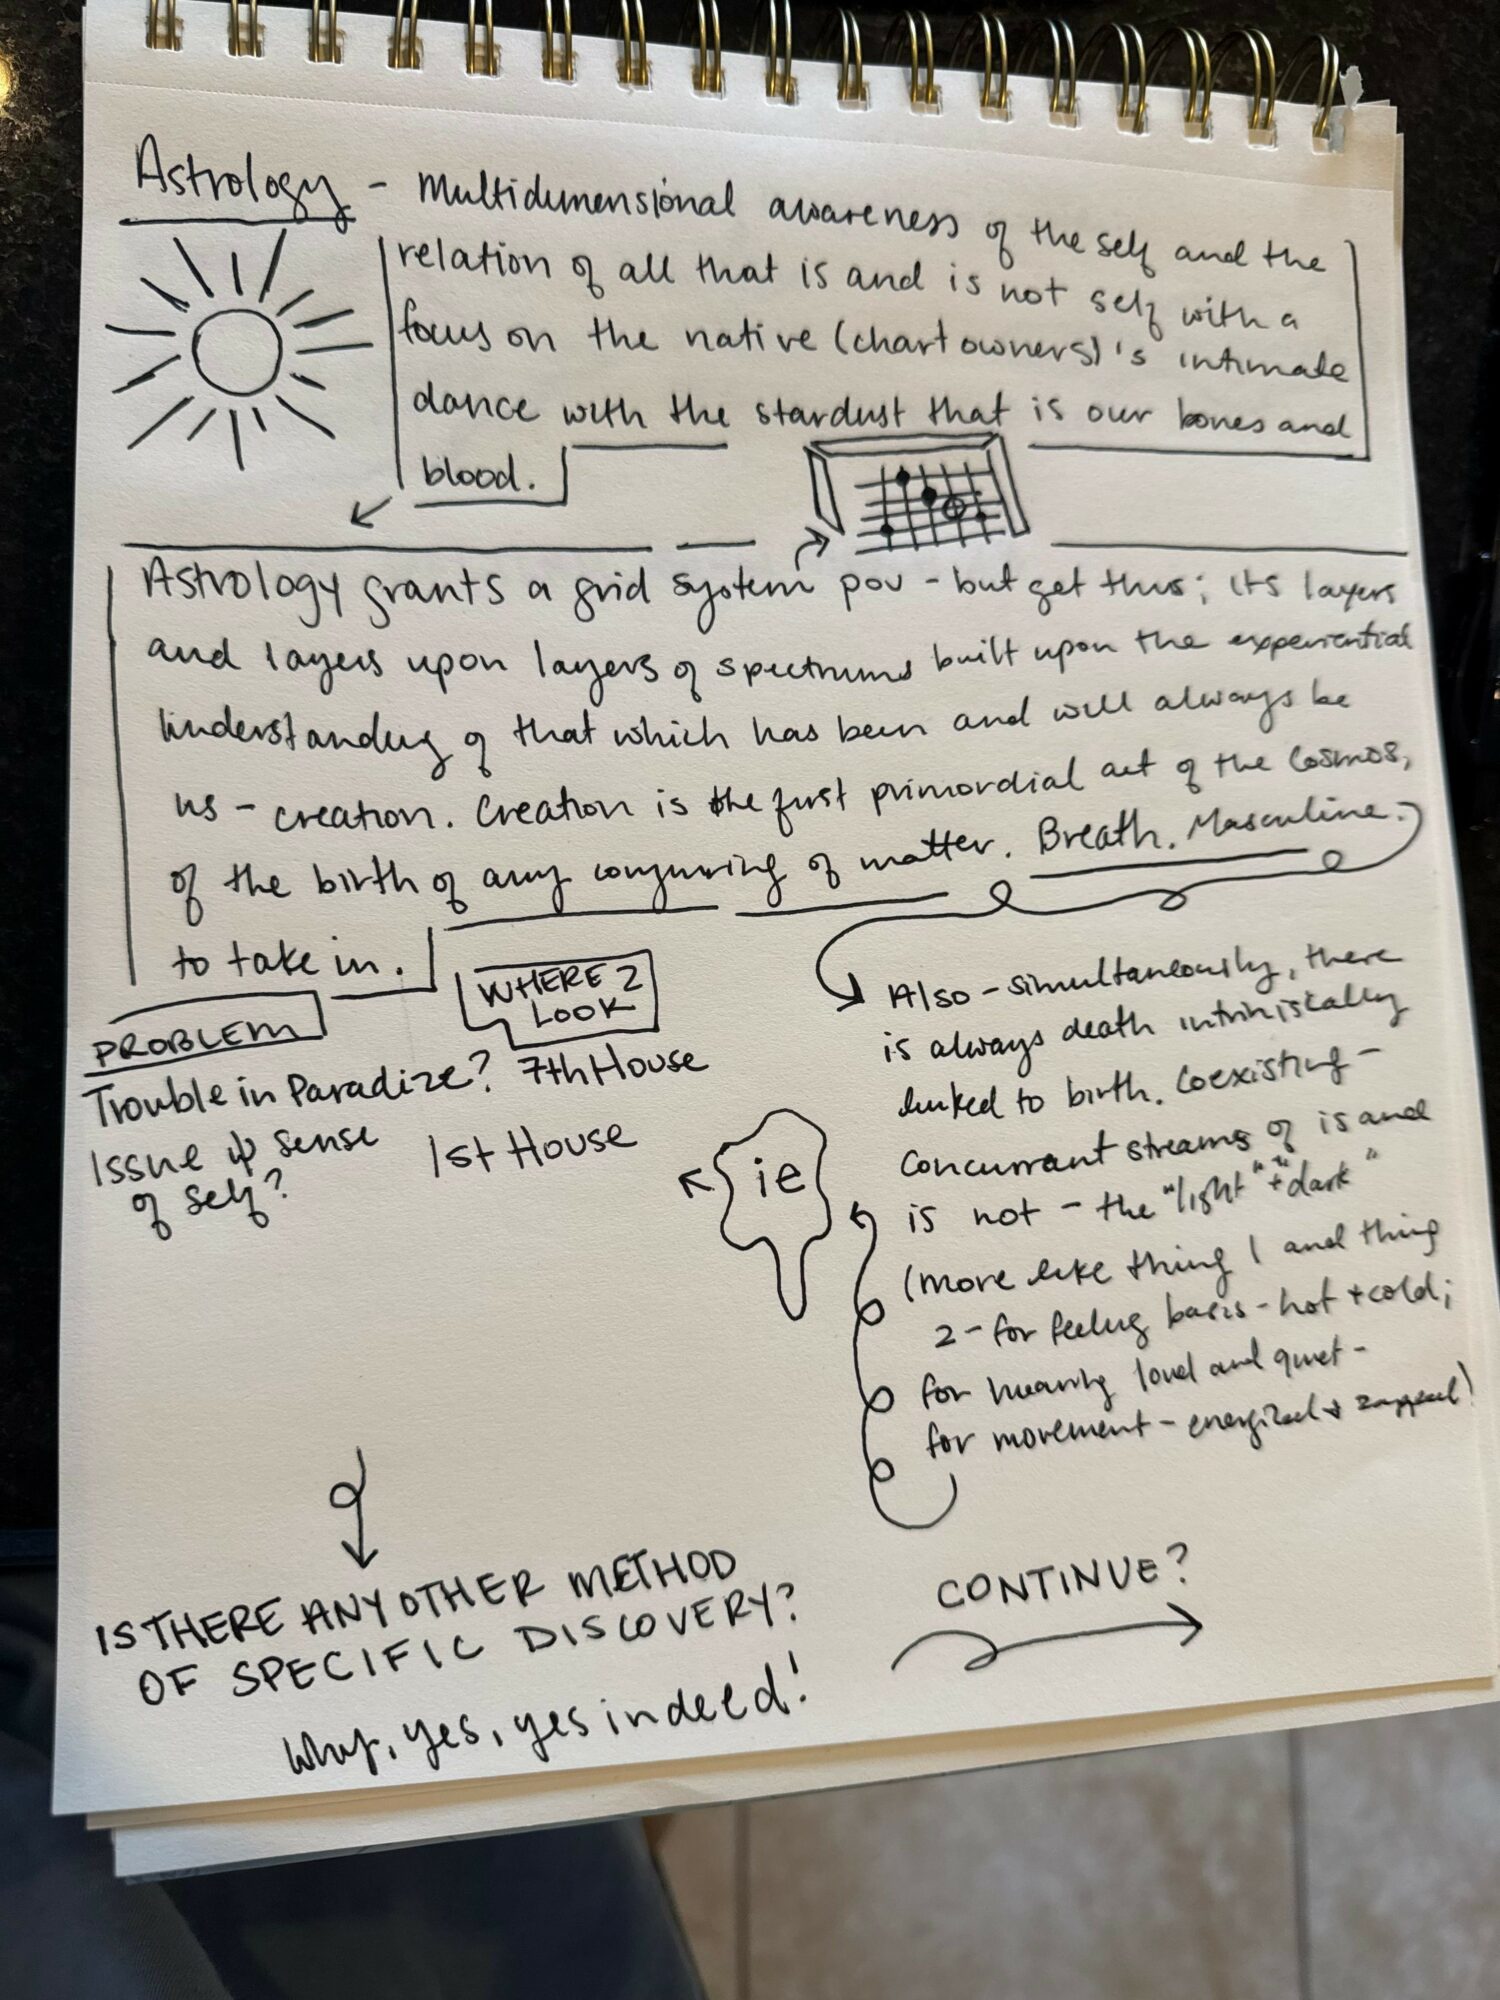 Astrology - Multidimensional awareness of the self and the
relation of all that is and is not self with a
focus on the native (chart owners)'s intimate
dance with the stardust that is our bones and
blood.
Astrology grants a grid system pov - but get this; its layers
and layers upon layers of spectrums built upon the experiential
understanding of that which has been and will always be
us - creation. Creation is the first primordial act of the Cosmos,
of the birth of any conjuring of matter. Breath. Masculine.
to take in.
PROBLEM
WHERE 2
LOOK
Trouble in Paradize? 7th House
Issue w/ sense 1st House
of self?
ie
Also - simultaneously, there
is always death intriniscally
linked to birth. Coexisting -
Concurrant streams of is and
is not - the "light" + "dark"
(more like thing 1 and thing
2 - for feeling basis - hot + cold;
for hearing loud and quiet -
for movement - energized + zapped)
IS THERE ANY OTHER METHOD
OF SPECIFIC DISCOVERY?
Why, yes, yes indeed!
CONTINUE?